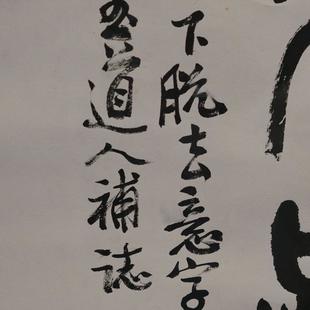 下脱去意字
道人補誌